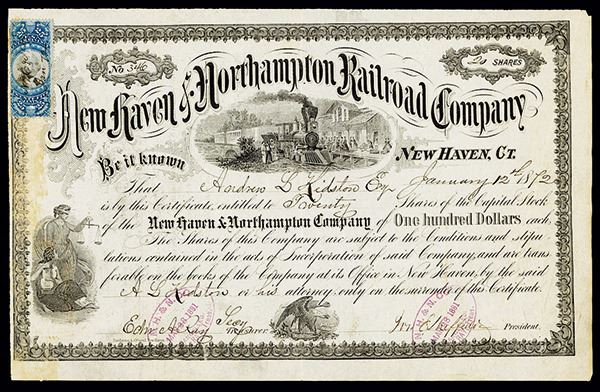 No 346
20 SHARES
New Haven & Northampton Railroad Company
NEW HAVEN, CT.
Be it known
January 12th 1872
That Andrew L Kidston Esq
is by this Certificate, entitled to Twenty Shares of the Capital Stock
of the New Haven & Northampton Company of One hundred Dollars each.
The Shares of this Company are subject to the Conditions and stipu-
lations contained in the acts of Incorporation of said Company, and are trans
ferable on the books of the Company at its Office in New Haven, by the said
A L Kidston or his attorney, only on the surrender of this Certificate.
N.H. & N. CO.
MAR 1891
N.H. & N. CO.
MAR 1891
Edw. A. Ray Secy
Treasurer.
President.